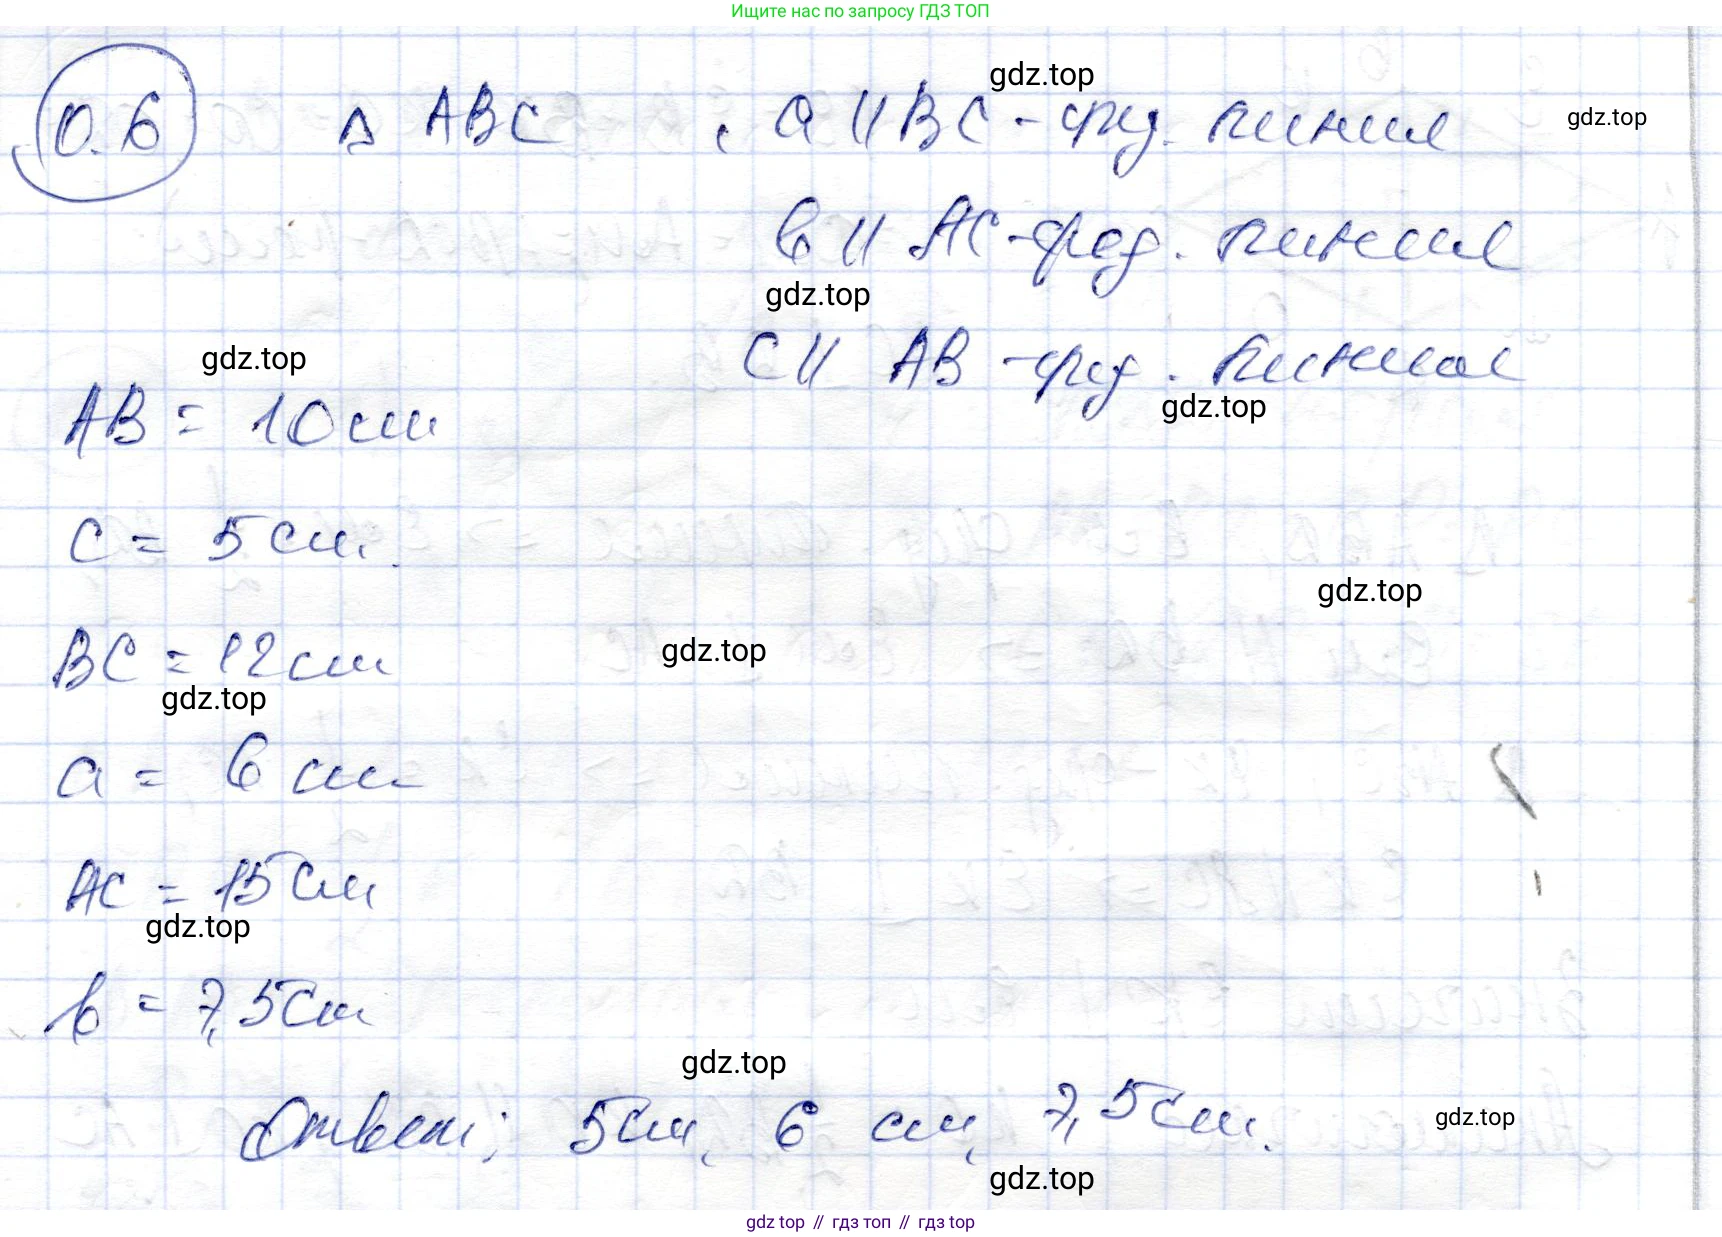 Ищите нас по запросу ГДЗ ТОП
gdz.top
0.6 Δ ABC , a || BC - сред. линия gdz.top
b || AC - сред. линия
gdz.top
c || AB - сред. линия
gdz.top
gdz.top
AB = 10 см
c = 5 см.
gdz.top
BC = 12 см gdz.top
gdz.top
a = 6 см
AC = 15 см
gdz.top
b = 7,5 см
gdz.top
Ответ: 5 см, 6 см, 7,5 см. gdz.top
gdz.top
gdz top // гдз топ // гдз top